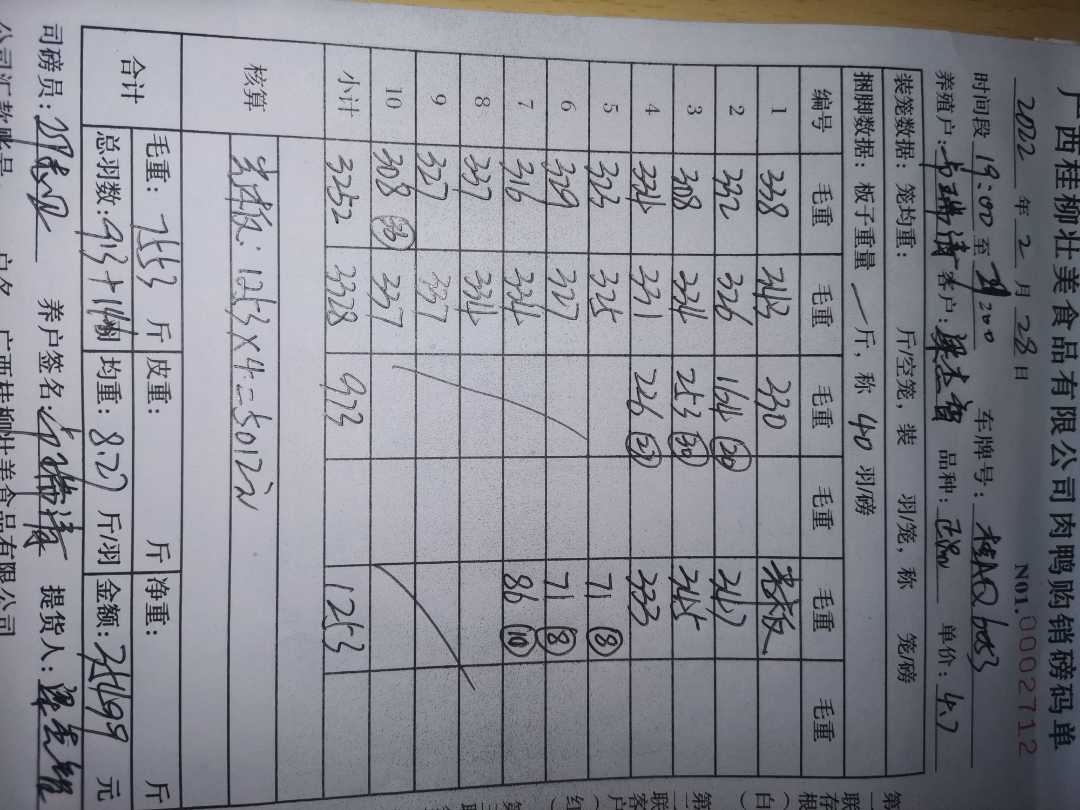 广西桂柳壮美食品有限公司肉鸭购销磅码单
2022 年 2 月 28 日 N01.0002712
时间段 19:00 至 车牌号: 桂AQ6053
养殖户: 客户: 梁杰智 品种: 单价: 4.7
装笼数据: 笼均重: 斤/空笼, 装 羽/笼, 称 笼/磅
捆脚数据: 板子重量 一 斤, 称 40 羽/磅
编号 毛重 毛重 毛重 毛重 毛重 毛重
1 338 343 330 老板
2 332 326 164 (20) 347
3 308 334 253 (30) 345
4 334 331 226 (27) 333
5 323 325 71 (8)
6 329 327 71 (8)
7 316 324 86 (10)
8 337 334
9 327 337
10 308 337
小计 3252 3328 973 1253
核算 老板: 1253×4=5012元
合计 毛重: 7553 斤 皮重: 斤 净重: 斤
总羽数: 913+ 均重: 8.27 斤/羽 金额: 元
司磅员: 养户签名: 提货人: 梁杰智
公司汇款账号: 户名: 广西桂柳壮美食品有限公司